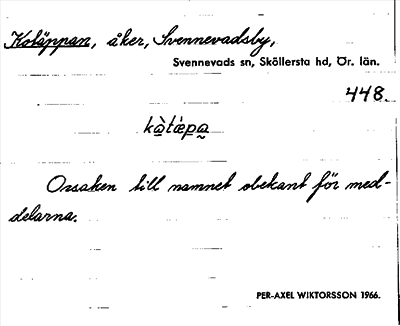 Kotäppan, åker, Svennevadsby,
Svennevads sn, Sköllersta hd, Ör. län.
448.
kàtǽpa
Orsaken till namnet obekant för med-
delarna.
PER-AXEL WIKTORSSON 1966.